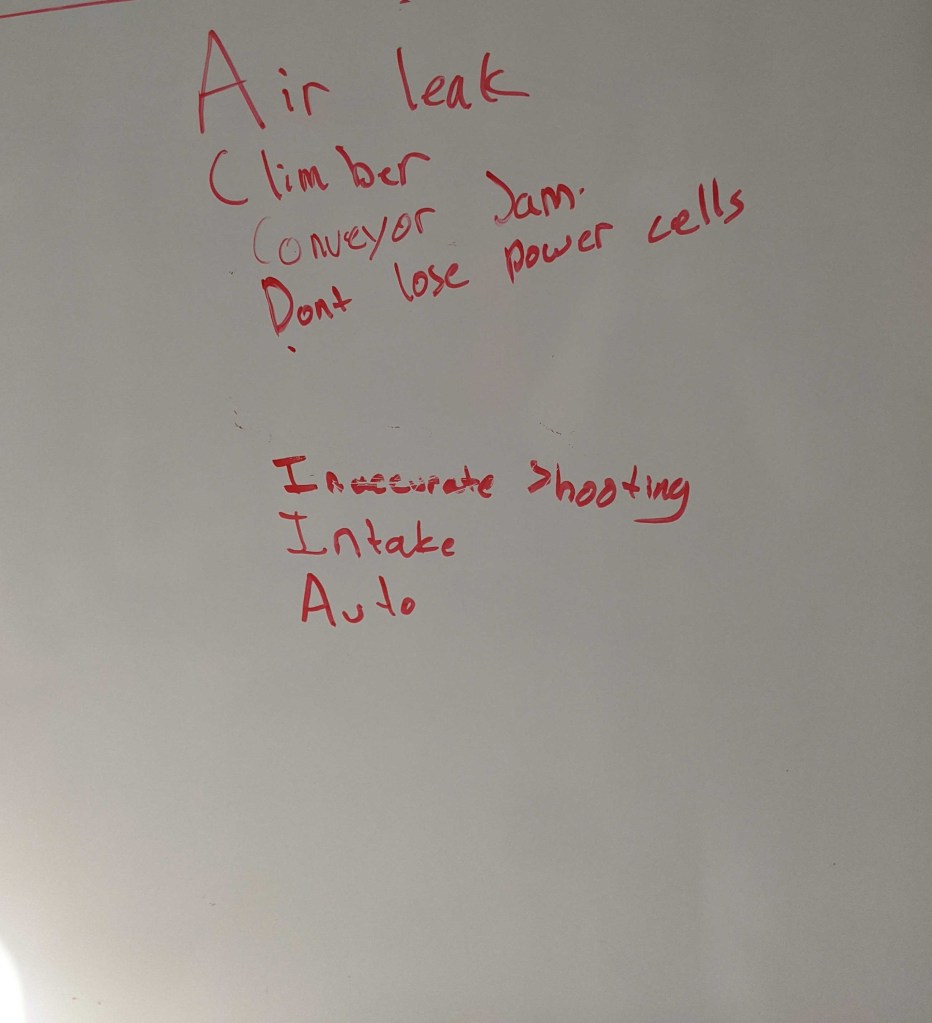 Air leak
Climber
Conveyor Jam.
Dont lose power cells
Inaccurate Shooting
Intake
Auto